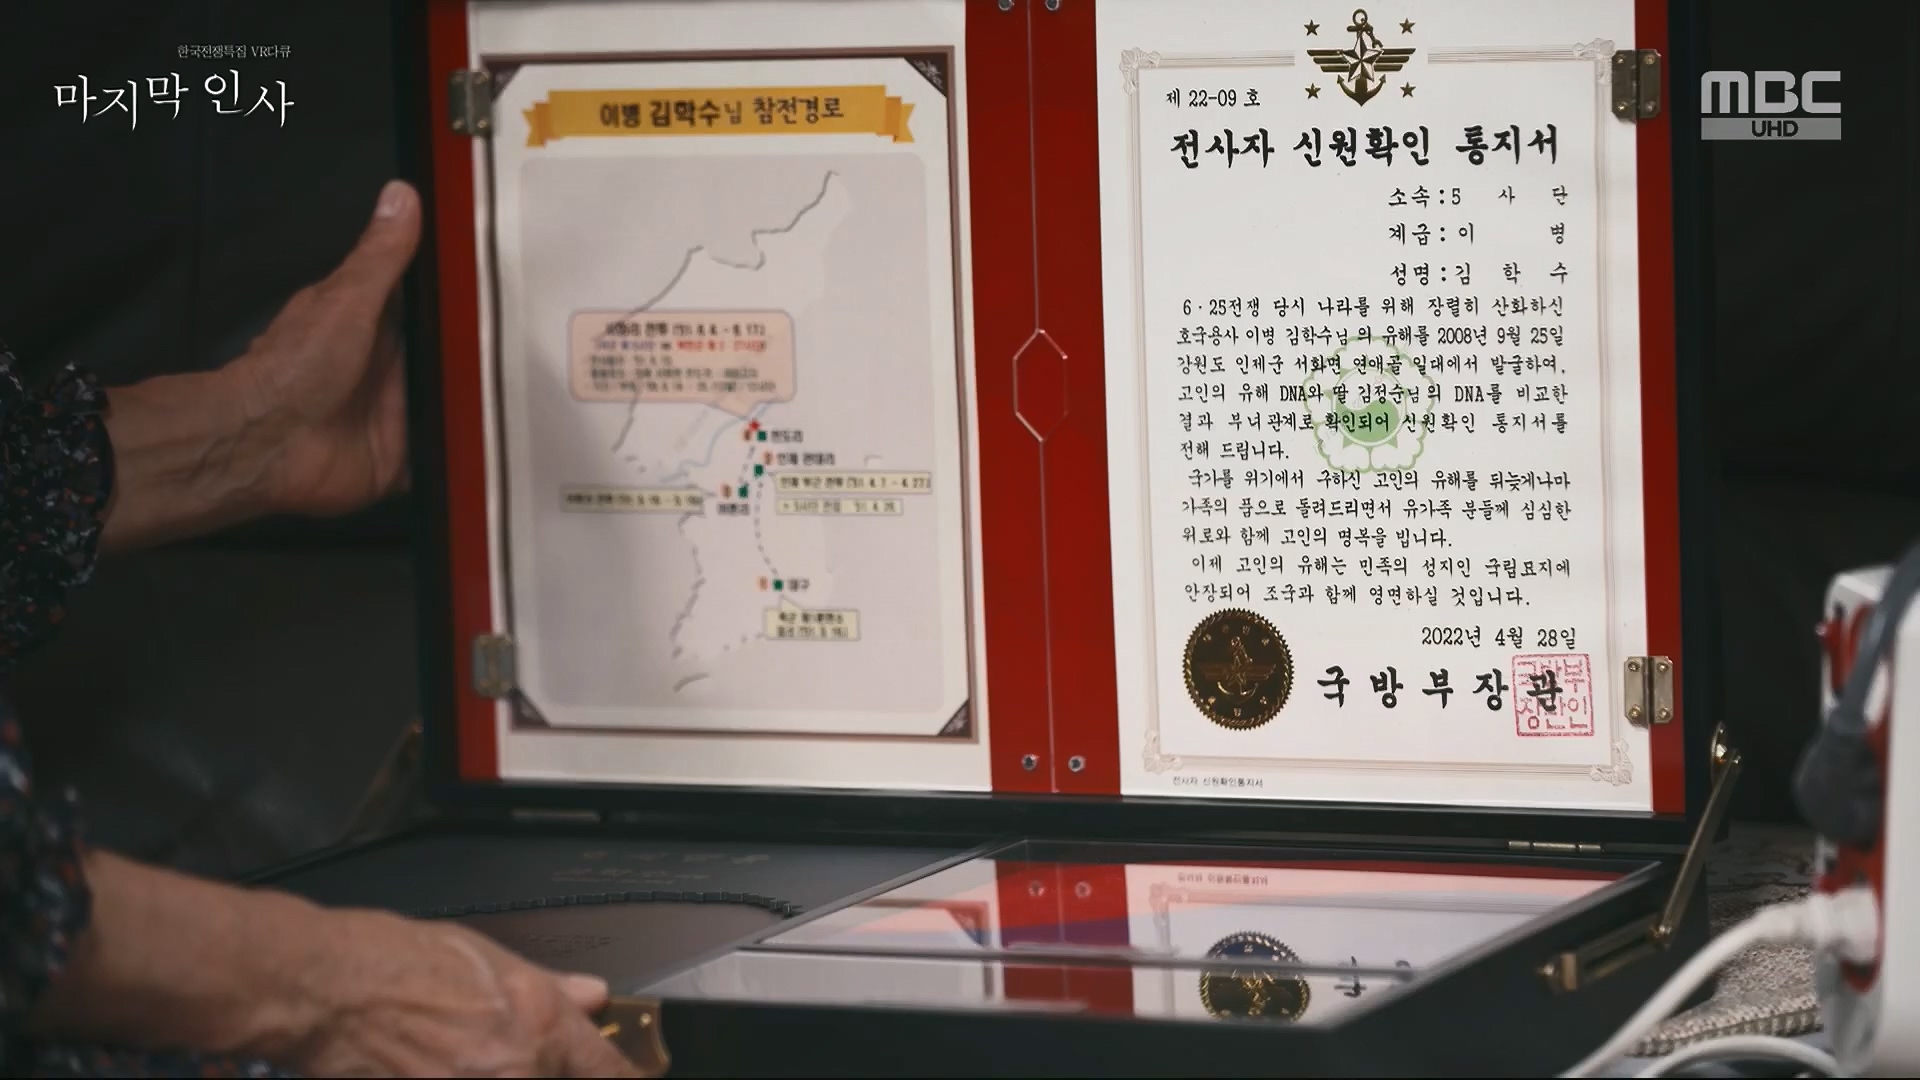 한국전쟁특집 VR다큐
마지막 인사
MBC
UHD
이병 김학수님 참전경로
대구
제 22-09 호
전사자 신원확인 통지서
소속 : 5 사 단
계급 : 이 병
성명 : 김 학 수
6·25전쟁 당시 나라를 위해 장렬히 산화하신
호국용사 이병 김학수님 의 유해를 2008년 9월 25일
강원도 인제군 서화면 연애골 일대에서 발굴하여,
고인의 유해 DNA와 딸 김정순님의 DNA를 비교한
결과 부녀관계로 확인되어 신원확인 통지서를
전해 드립니다.
국가를 위기에서 구하신 고인의 유해를 뒤늦게나마
가족의 품으로 돌려드리면서 유가족 분들께 심심한
위로와 함께 고인의 명복을 빕니다.
이제 고인의 유해는 민족의 성지인 국립묘지에
안장되어 조국과 함께 영면하실 것입니다.
2022년 4월 28일
국 방 부 장 관
국방부
장관인
전사자 신원확인통지서